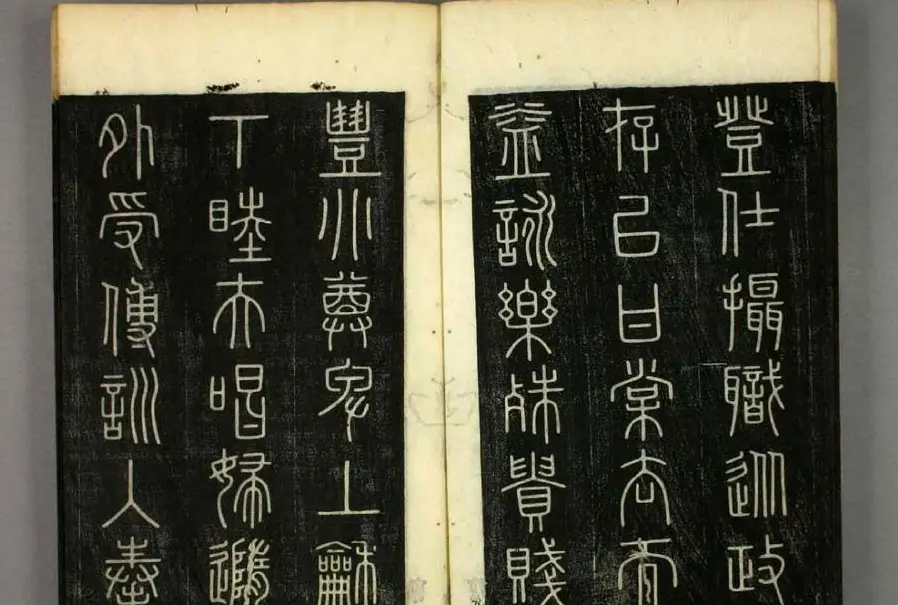 登仕攝職從政
存以甘棠去而
益詠樂殊貴賤
禮別尊卑上和
下睦夫唱婦隨
外受傅訓入奉